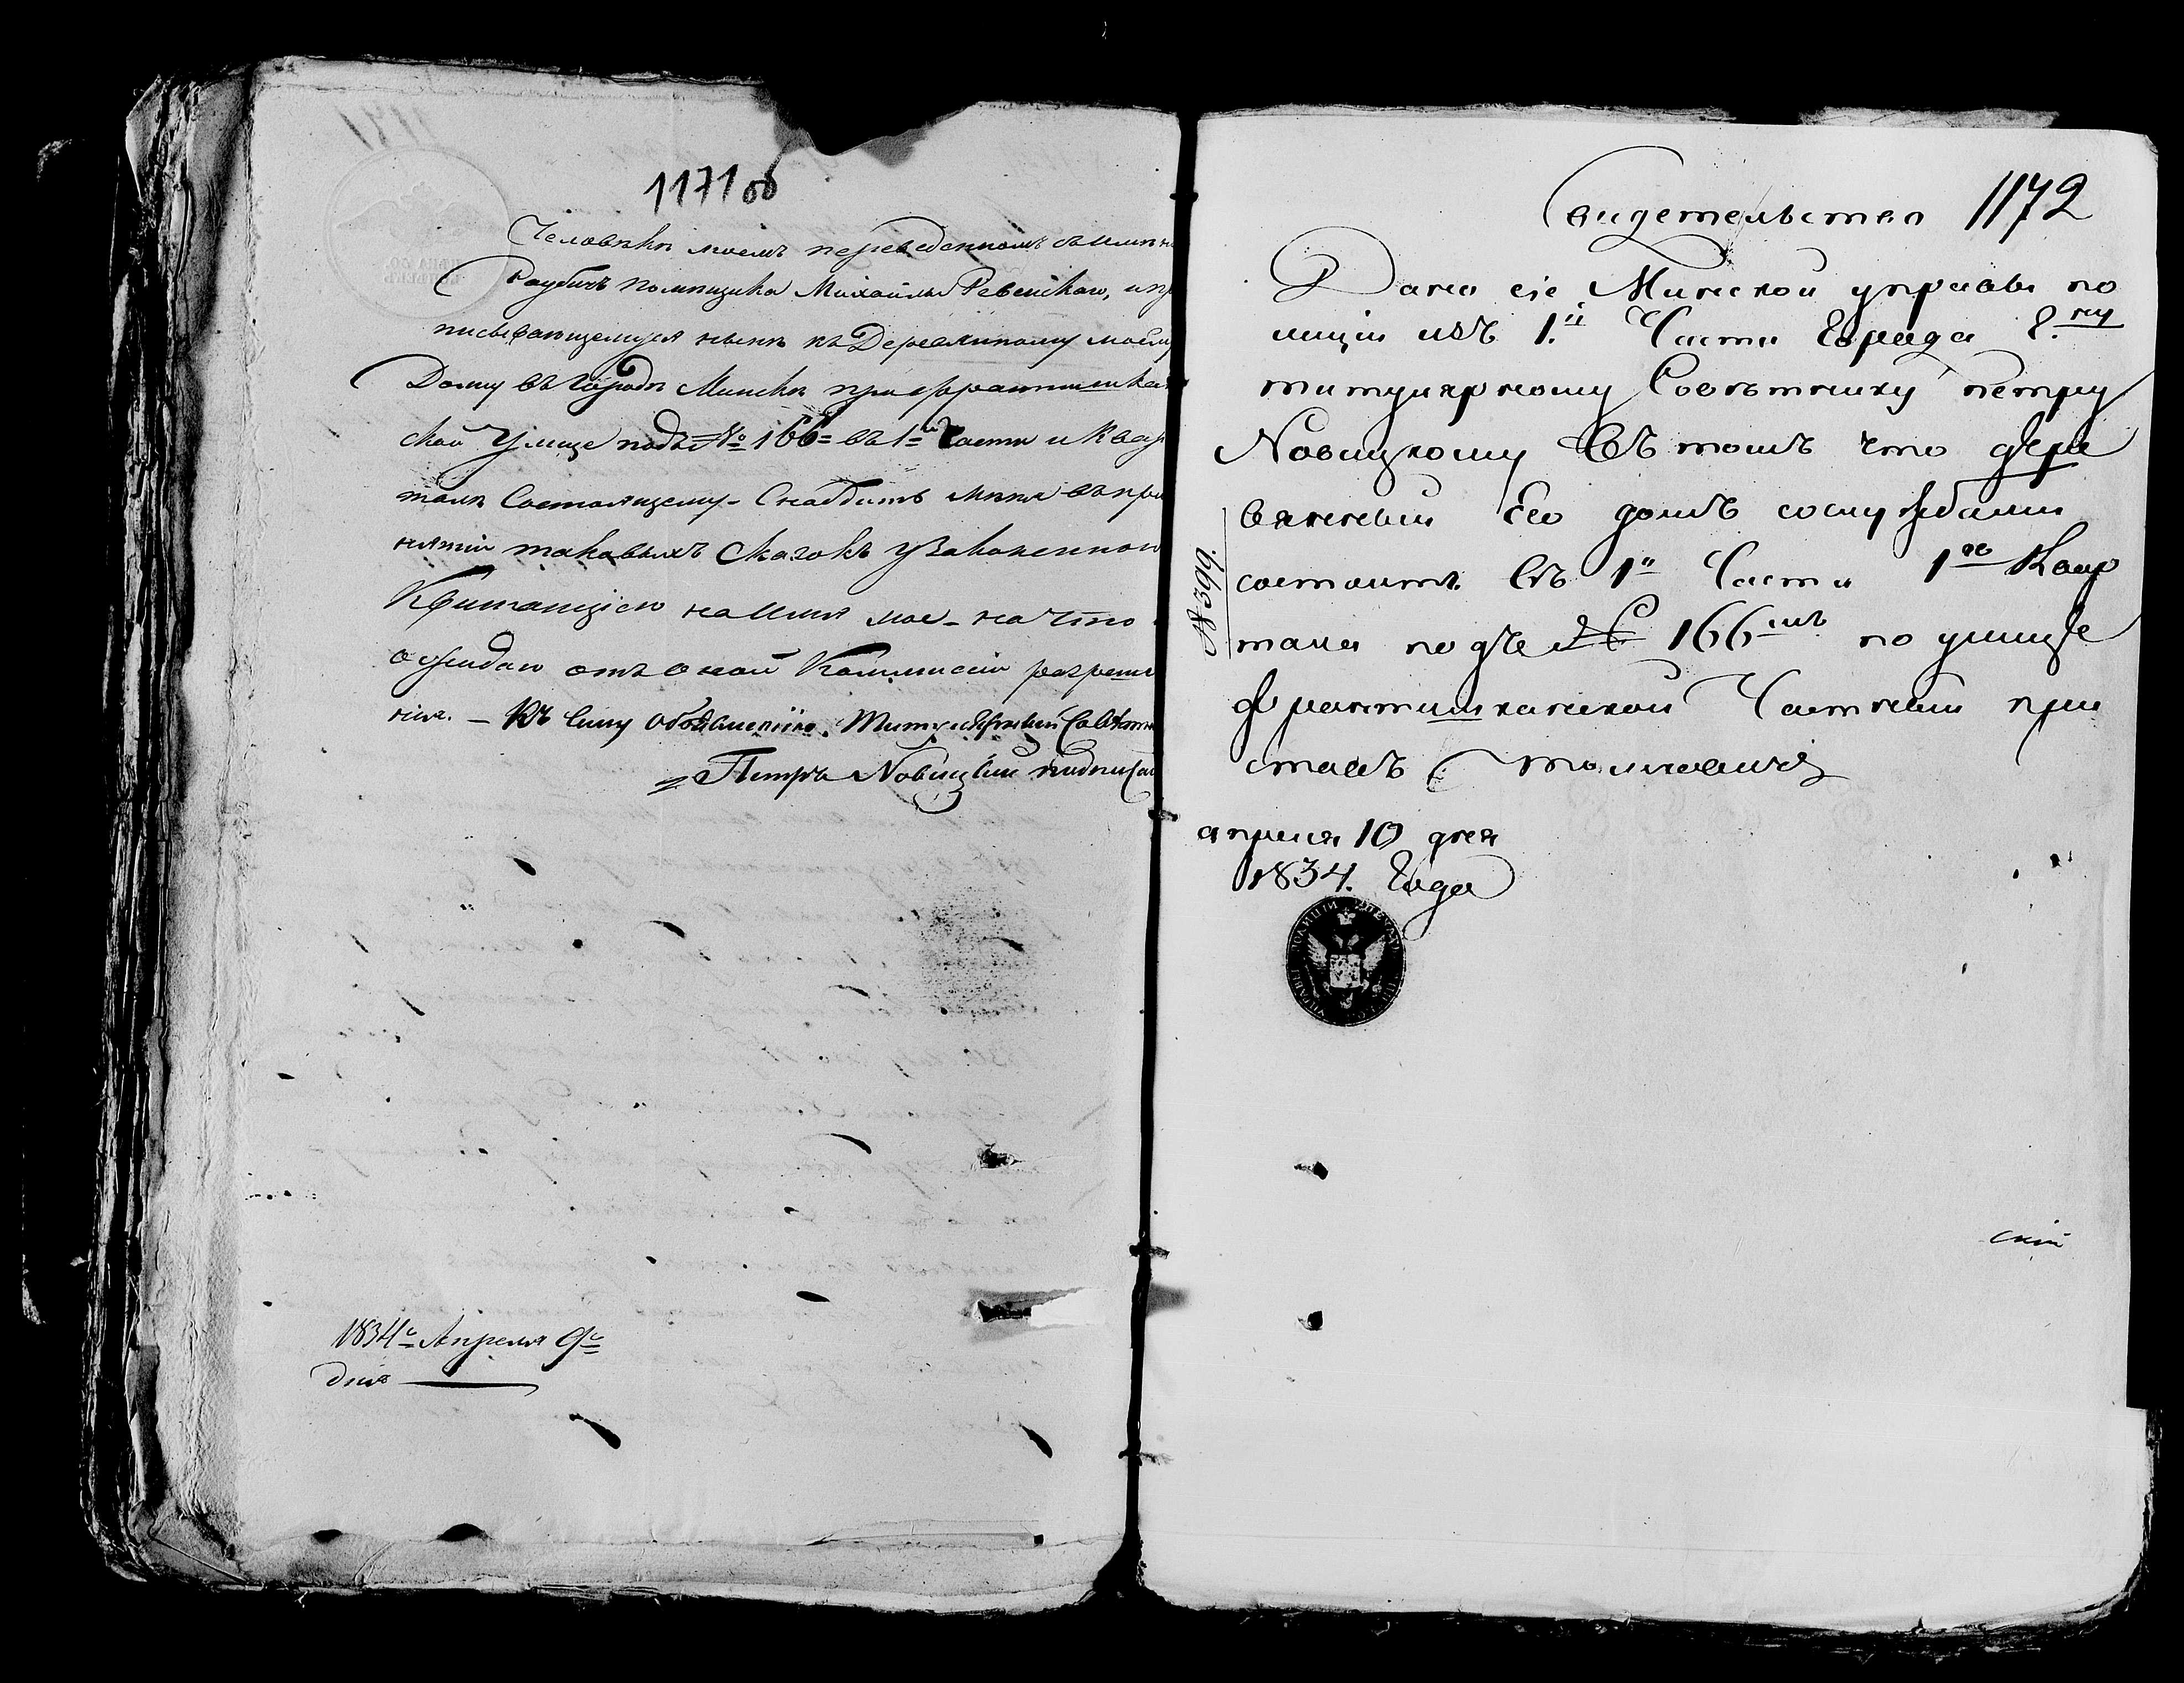 1171 об
Человѣкѣ моемъ переведенномъ съ имѣнія
Раубичь помѣщика Михайлы Ревенскаго, и при
писывающемуся нынѣ къ Деревянному моему
Дому въ Городѣ Минскѣ при Францишкан
ской Улице подъ № 166 = въ 1й Части и Квар
талѣ Состоящему - Снабдить меня въ при
нятіи таковыхъ Сказокъ узаконенною
Квитанціею на имя мое - на что
ожидаю отъ оной Коммиссіи разреше
нія. - Къ сему обьявленію Титулярный Советник
Петръ Новицкій подписал
1834го Апреля 9го
дня
1172
Свидетельство
Дано сіе Минской управы по
лиціи изъ 1.й Части Города Г.ну
титулярному Советнику петру
Новицкому Въ томъ что дере
вянный Его домъ сослужбами
состоитъ въ 1й Части 1го Квар
тала подъ № 166мъ по улице
Францишканской Частный при
ставъ
апреля 10 дня
1834. Года
№ 399.
скій